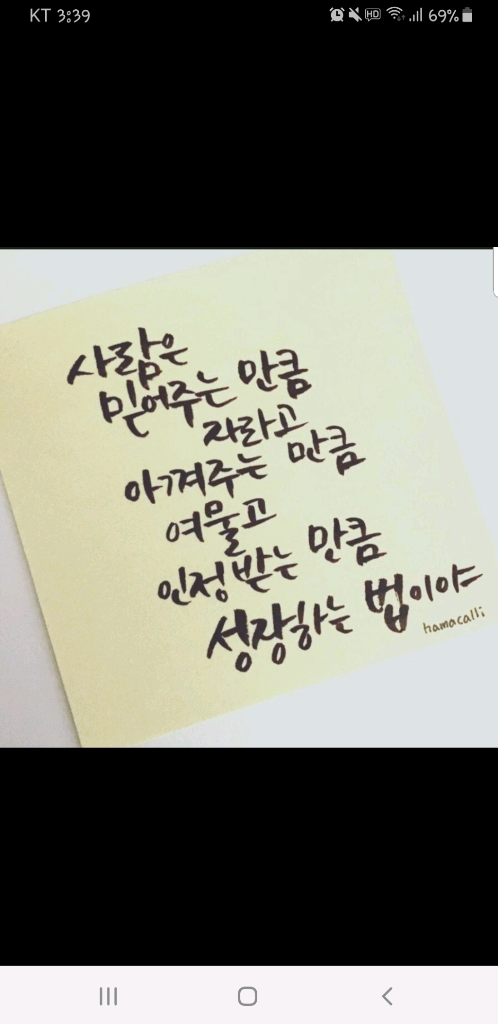 KT 3:39
HD 69%
사람은
믿어주는 만큼
자라고
아껴주는 만큼
여물고
인정받는 만큼
성장하는 법이야
hamacalli